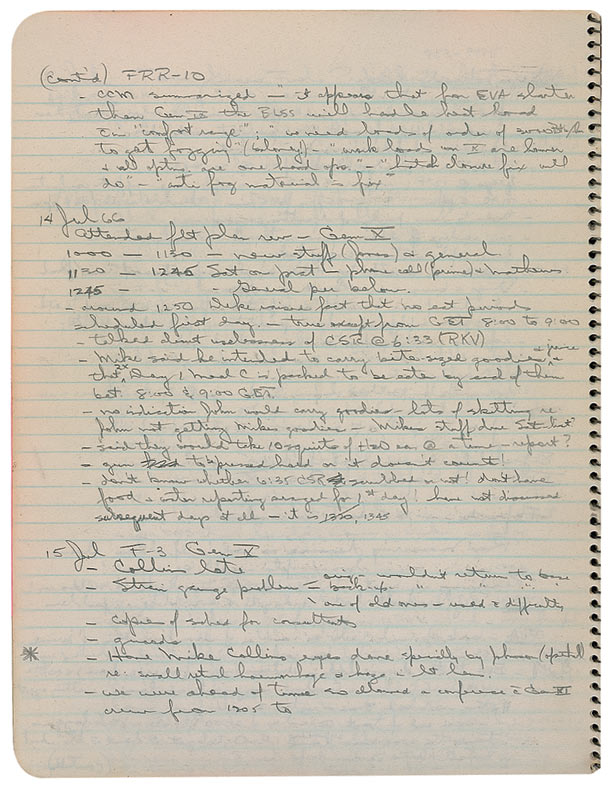 (cont'd) FRR-10
- CCM summarized - "it appears that for EVA shorter
than Gem IX the ELSS will handle heat load
in "comfort range"; "we need loads of order of
to get fogging" - "work loads on X are lower
& all are one hand ops." - "hatch closure fix will
do" - "anti fog material is fix"
14 Jul 66
Attended flt plan rev - Gem X
1000 - 1130 - new stuff & general
1130 - 1245 Sat on - phone call (prime) & Mathews
1245 - - General per below.
- around 1250 Deke raised fact that no eat periods
scheduled first day. - true except from GET 8:00 to 9:00
- talked about uselessness of CSR @ 6:33 (RKV)
- Mike said he intended to carry bite-sized goodies & juice
that Day 1 Meal C is packed to be eaten by end of then
bet. 8:00 & 9:00 GET.
- no indication John would carry goodies - lots of re.
John not getting Mike's goodies - Mike's stuff due
- said they would take 10 squirts of H2O ea. @ a time - report?
- gun to be pressed hard or "it doesn't count"!
- don't know whether 6:35 CSR scrubbed or not! don't have
food & water reporting arranged for 1st day! have not discussed
subsequent days at all - it is 1330, 1345
15 Jul F-3 Gem X
- Collins late
- Strain gauge problem - wouldn't return to base
- back-up " " " "
one of old ones - used c difficulty
- copies of for consultants
- guards
- Have Mike Collins eyes done specially by
re: small retinal haemorrhage
- we were ahead of time so allowed a conference c Gem XI
crew from 1205 to